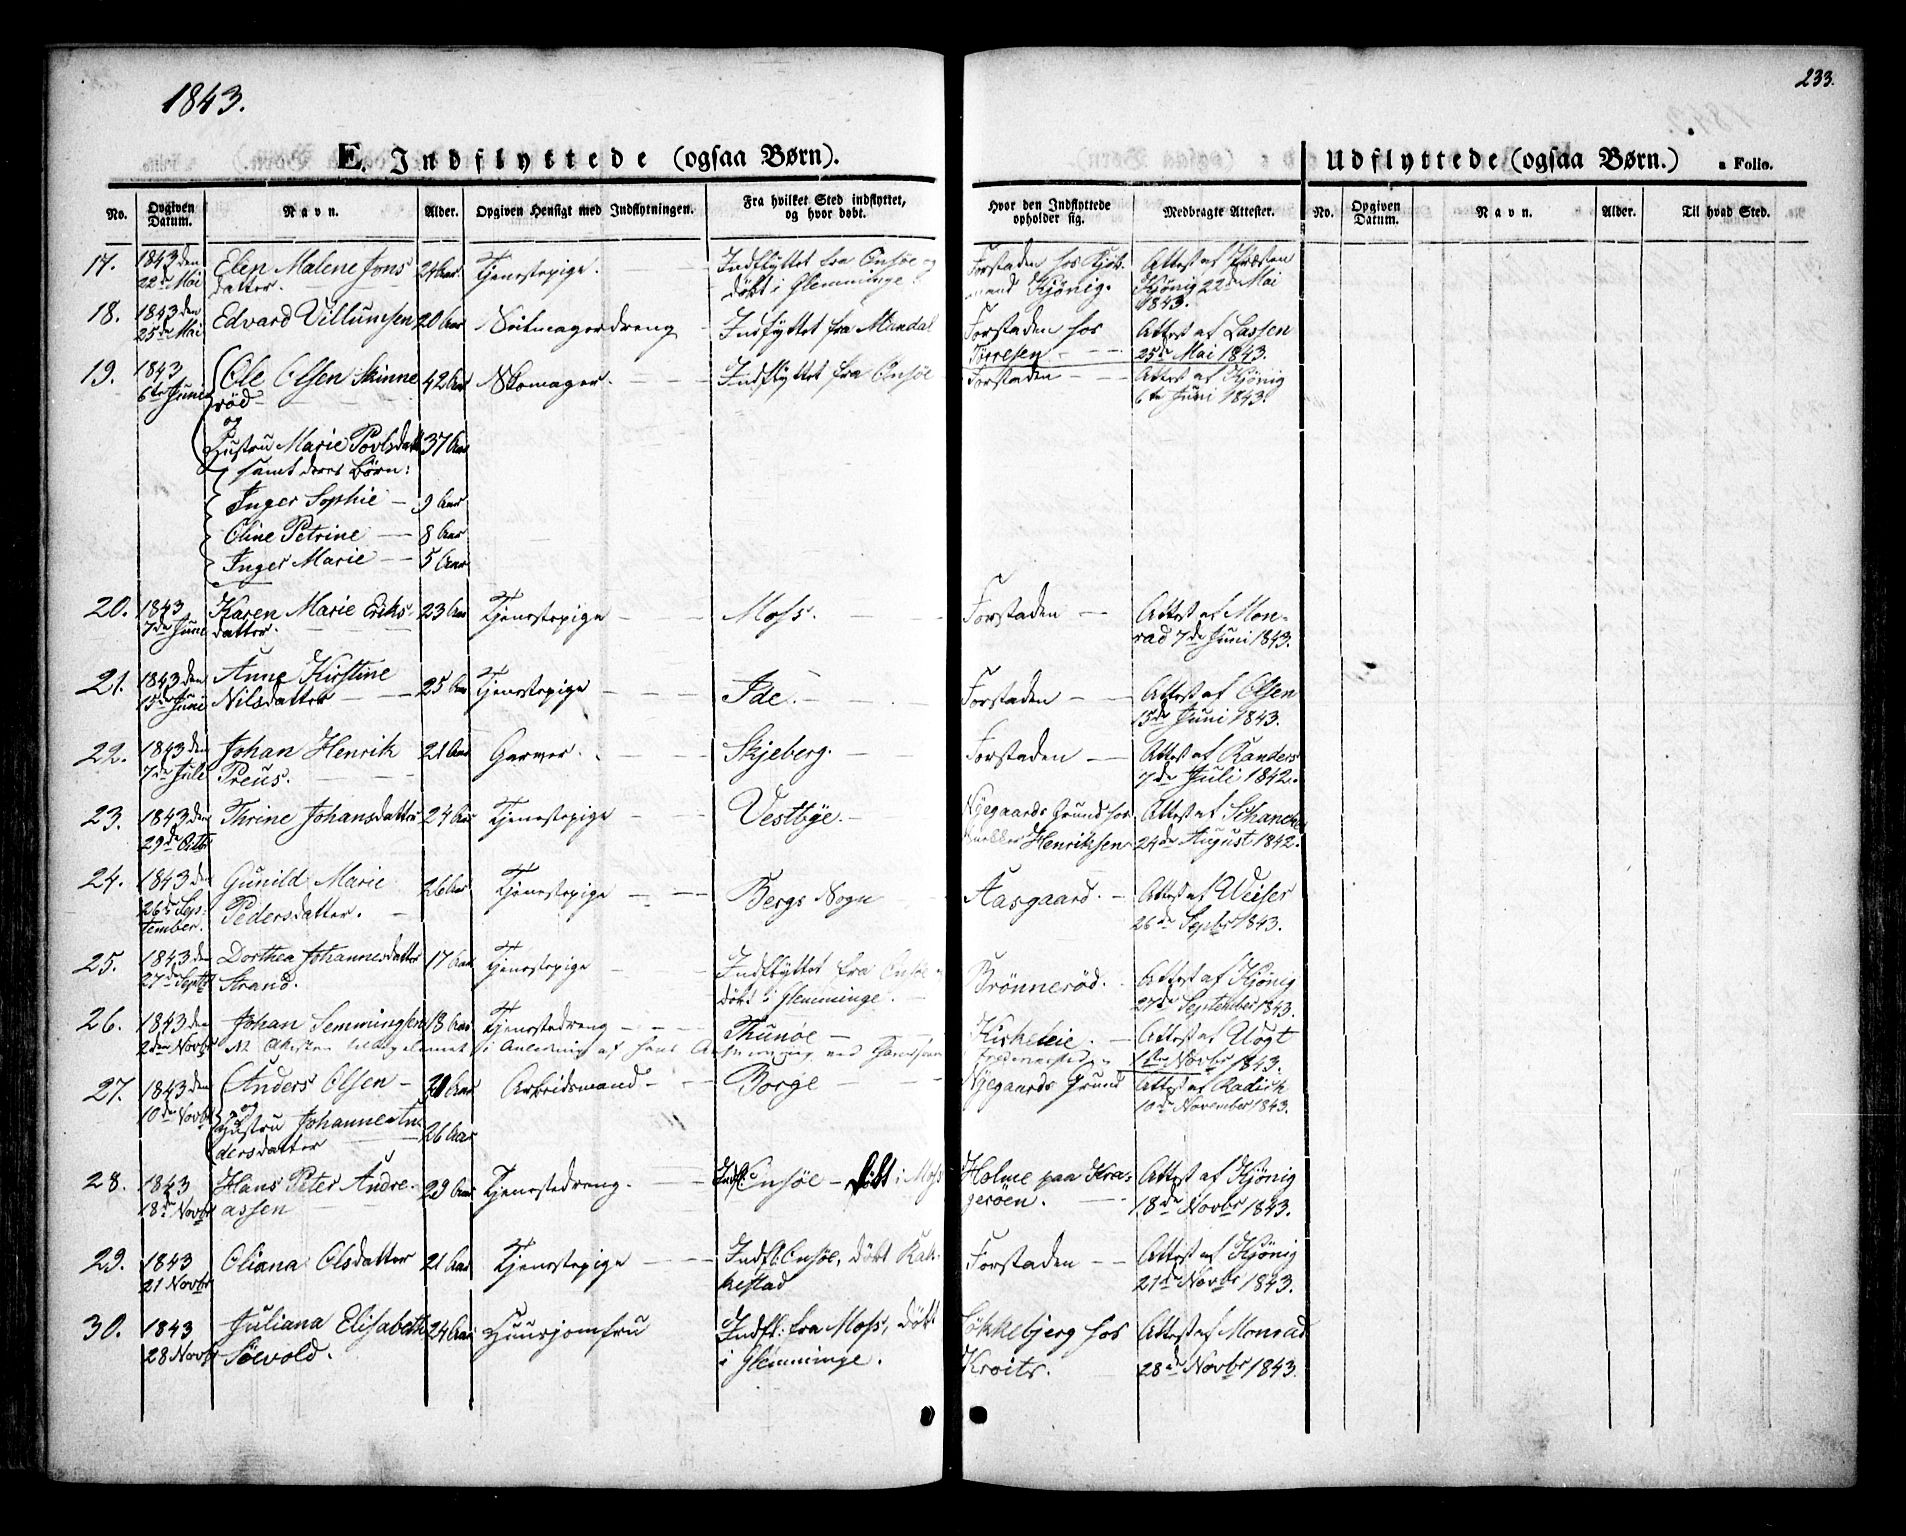 1843.
233.
E. Indflyttede (ogsaa Børn).
Udflyttede (ogsaa Børn.) a Folio.
No. Opgiven Datum. Navn. Alder. Opgiven Hensigt med Indflytningen. Fra hvilket Sted indflyttet, og hvor døbt. Hvor den Indflyttede opholder sig. Medbragte Attester. No. Opgiven Datum. Navn. Alder. Til hvad Sted.
17. 1843 den Elen Malene Jons 24 Aar. Tjenestepige. Indflyttet fra Onsøe og Forstaden hos Kjøb- Attest af Præsten
22de Mai datter. døbt i Glemminge. mand Kjönig. Kjönig 22de Mai
1843.
18. 1843 den Edvard Villumsen 20 Aar Indflyttet fra Mandal Forstaden hos Attest af Lassen
25de Mai Törresen 25de Mai 1843.
19. 1843 Ole Olsen Skinne 42 Aar Skomager. Indflyttet fra Onsöe Forstaden Attest af Kjönig
6te Juni röd 6te Juni 1843.
og
Hustru Marie Povlsdatt 37 Aar
samt deres Börn:
Inger Sophie 9 Aar
Oline Petrine 8 Aar
Inger Marie 5 Aar
20. 1843 Karen Marie Eriks- 23 Aar Tjenestepige Moss. Forstaden Attest af Mon-
7de Juni datter. rad 7de Juni 1843.
21. 1843 den Anne Kirstine 25 Aar Tjenestepige Ide. Forstaden Attest af Olsen
15de Juni Nilsdatter 15de Juni 1843.
22. 1843 den Johan Henrik 21 Aar Garver. Skjeberg. Forstaden Attest af Randers
7de Juli Preus. 7de Juli 1842.
23. 1843 den Thrine Johansdatter 24 Aar Tjenestepige Vestbye. Nyegaards Grund hos Attest af Schancke
29de Henriksen 24de August 1842.
24. 1843 den Gunild Marie 26 Aar Tjenestepige Bergs Sogn Aasgaard. Attest af
26de Sep- Pedersdatter. 26de Septbr 1843.
tember.
25. 1843 den Dorthea Johannesdatter 17 Aar Tjenestepige Indflyttet fra Onsöe Brönneröd. Attest af Kjönig
27de Septb Strand. döbt i Glemminge. 27de September 1843.
26. 1843 den Johan Semmingsen 18 Aar Tjenestedreng Thunöe Kirkeleie. Attest af Vogt
2den Novbr i Anledning af hans 1ste Novbr 1843.
27. 1843 den Anders Olsen Aar Arbeidsmand Borge Nyegaards Grund Attest af Radich
10de Novbr og 10de November 1843.
Hustru Johanne An- 26 Aar
dersdatter
28. 1843 Hans Peter Andre- 29 Aar Tjenestedreng. Indfl. Onsöe döbt i Moss Holme paa Kra- Attest af Kjönig
18de Novbr assen geröen. 18de Novbr 1843.
29. 1843 Oliana Olsdatter 21 Aar Tjenestepige Indfl. Onsöe, döbt Rak- Forstaden Attest af Kjönig
21 Novbr kestad 21de Novbr 1843.
30. 1843 Juliana Elisabeth 24 Aar Huusjomfru Indfl: fra Moss, döbt Lökkebjerg hos Attest af Monrad
28 Novbr Söevold. i Glemminge. Kroits. 28de Novbr 1843.